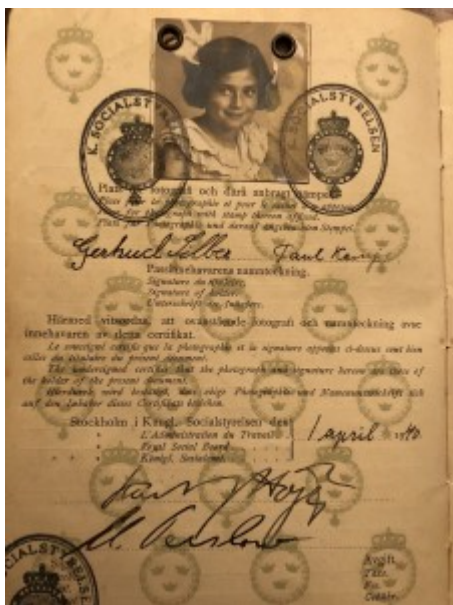 K. SOCIALSTYRELSEN
K. SOCIALSTYRELSEN
Plats för fotografi och därå anbragt stämpel.
Place for photograph with stamp thereon affixed.
Gertrud Paul
Passinnehavarens namnteckning.
Signature du titulaire.
Signature of holder.
Unterschrift des Inhabers.
Härmed vitsordas, att ovanstående fotografi och namnteckning avse
innehavaren av detta certifikat.
Le soussigné certifie que la photographie et la signature apposées ci-dessus sont bien
celles du titulaire du présent document.
The undersigned certifies that the photograph and signature hereon are those of
the bearer of the present document.
Hierdurch wird bestätigt, dass obige Photographie und Namensunterschrift sich
auf den Inhaber dieses Certifikats beziehen.
Stockholm i Kungl. Socialstyrelsen den
1 april 1940
L'Administration du Travail
Royal Social Board
Königl. Sozialamt
Avgift
Taxe
Fee